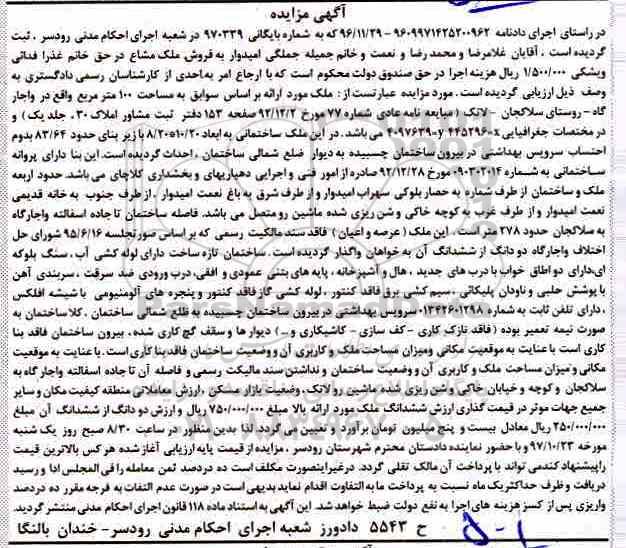 آگهی مزایده
در راستای اجرای دادنامه ۹۶۰۹۹۷۱۴۲۵۲۰۰۹۶۲ - ۹۶/۱۱/۲۹ که به شماره بایگانی ۹۷۰۳۳۹ در شعبه اجرای احکام مدنی رودسر ، ثبت
گردیده است ، آقایان غلامرضا و محمد رضا و نعمت و خانم جمیله جملگی امیدوار به فروش ملک مشاع در حق خانم غذرا فدائی
ویشکی ۱/۵۰۰/۰۰۰ ریال هزینه اجرا در حق صندوق دولت محکوم است که با ارجاع امر به احدی از کارشناسان رسمی دادگستری به
وصف ذیل ارزیابی گردیده است . مورد مزایده عبارتست از: ملک مورد ارائه بر اساس سوابق به مساحت ۱۰۰ متر مربع واقع در واجار
گاه - روستای سلاکجان - لاتک ( مبایعه نامه عادی شماره ۷۷ مورخ ۹۲/۱۲/۲ صفحه ۱۵۳ دفتر ثبت مشاور املاک ۳۰ ، جلد یک ) و
در مختصات جغرافیایی ۴۴۵۲۹۶۰x ۴۰۹۷۶۳۹۰y می باشد . در این ملک ساختمانی به ابعاد ۱۰/۲۰*۸/۲۰ با زیر بنای حدود ۸۳/۶۴ بدوم
احتساب سرویس بهداشتی در بیرون ساختمان چسبیده به دیوار ضلع شمالی ساختمان ، احداث گردیده است. این بنا دارای پروانه
ساختمانی به شماره ۰۹۰۳۰۲۰۱۴ مورخ ۹۲/۱۲/۲۸ صادره از امور فنی و اجرایی دهیاریهای و بخشداری کلاچای می باشد. حدود اربعه
ملک و ساختمان از طرف شماره به حصار بلوکی سهراب امیدوار و از طرف شرق به باغ نعمت امیدوار ، از طرف جنوب به خانه قدیمی
نعمت امیدوار و از طرف غرب به کوچه خاکی و شن ریزی شده ماشین رو متصل می باشد. فاصله ساختمان تا جاده اسفالته واجارگاه
به سلاکجان حدود ۲۷۸ متر است . این ملک ( عرصه و اعیان ) فاقد سند مالکیت رسمی که بر اساس صور تجلسه ۹۵/۶/۱۶ شورای حل
اختلاف واجارگاه دو دانگ از ششدانگ آن به خواهان واگذار گردیده است. ساختمان تازه ساخت دارای لوله کشی آب ، سنگ بلوکه
ای، دارای دو اطاق خواب با درب های جدید ، هال و آشپزخانه ، پایه های بتنی عمودی و افقی، درب ورودی ضد سرقت ، سربندی آهن
با پوشش حلبی و ناودان پلیکائی ، سیم کشی برق فاقد کنتور ، لوله کشی گاز فاقد کنتور و پنجره های آلومنیومی با شیشه افلکس
، دارای تلفن ثابت به شماره ۰۱۳۴۲۶۰۱۲۹۸ سرویس بهداشتی در بیرون ساختمان چسبیده به ظلع شمالی ساختمان ، کلا ساختمان به
صورت نیمه تعمیر بوده ( فاقد نازک کاری - کف سازی - کاشیکاری و ...) دیوار ها و سقف گچ کاری شده ، بیرون ساختمان فاقد بنا
کاری است با عنایت به موقعیت مکانی ومیزان مساحت ملک و کاربری آن و وضعیت ساختمان فاقد بنا کاری است . با عنایت به موقعیت
مکانی و میزان مساحت ملک و کاربری آن و وضعیت ساختمان و نداشتن سند مالیکت رسمی و فاصله آن تا جاده اسفالته واجار گاه به
سلاکجان و کوچه و خیابان خاکی و شن ریزی شده ماشین رو لاتک ، وضعیت بازار مسکن ، ارزش معاملاتی منطقه کیفیت مکان و سایر
جمیع جهات موثر در قیمت گذاری ارزش ششدانگ ملک مورد ارائه بالا مبلغ ۷۵۰/۰۰۰/۰۰۰ ریال و ارزش دو دانگ از ششدانگ آن مبلغ
۲۵۰/۰۰۰/۰۰۰ ریال معادل بیست و پنج میلیون تومان برآورد و تعیین می گردد. لذا بدین منظور در ساعت ۸/۳۰ صبح روز یک شنبه
مورخه ۹۷/۱۰/۲۳ و با حضور نماینده دادستان محترم شهرستان رودسر ، مزایده از قیمت پایه ارزیابی آغاز شده هر کس بالاترین قیمت
را پیشنهاد کند می تواند با پرداخت آن مالک تلقی گردد. در غیر اینصورت مکلف است ده درصد ثمن معامله را فی المجلس ادا و رسید
دریافت و ظرف حداکثر یک ماه نسبت به پرداخت ما به التفاوت اقدام نماید بدیهی است در صورت عدم التفات به فرجه مقرر ده درصد
واریزی پس از کسر هزینه های اجرا به نفع دولت ضبط خواهد شد. این آگهی به استناد ماده ۱۱۸ قانون اجرای احکام مدنی منتشر گردید.
ح ۵۵۴۳ دادورز شعبه اجرای احکام مدنی رودسر - خندان بالنگا